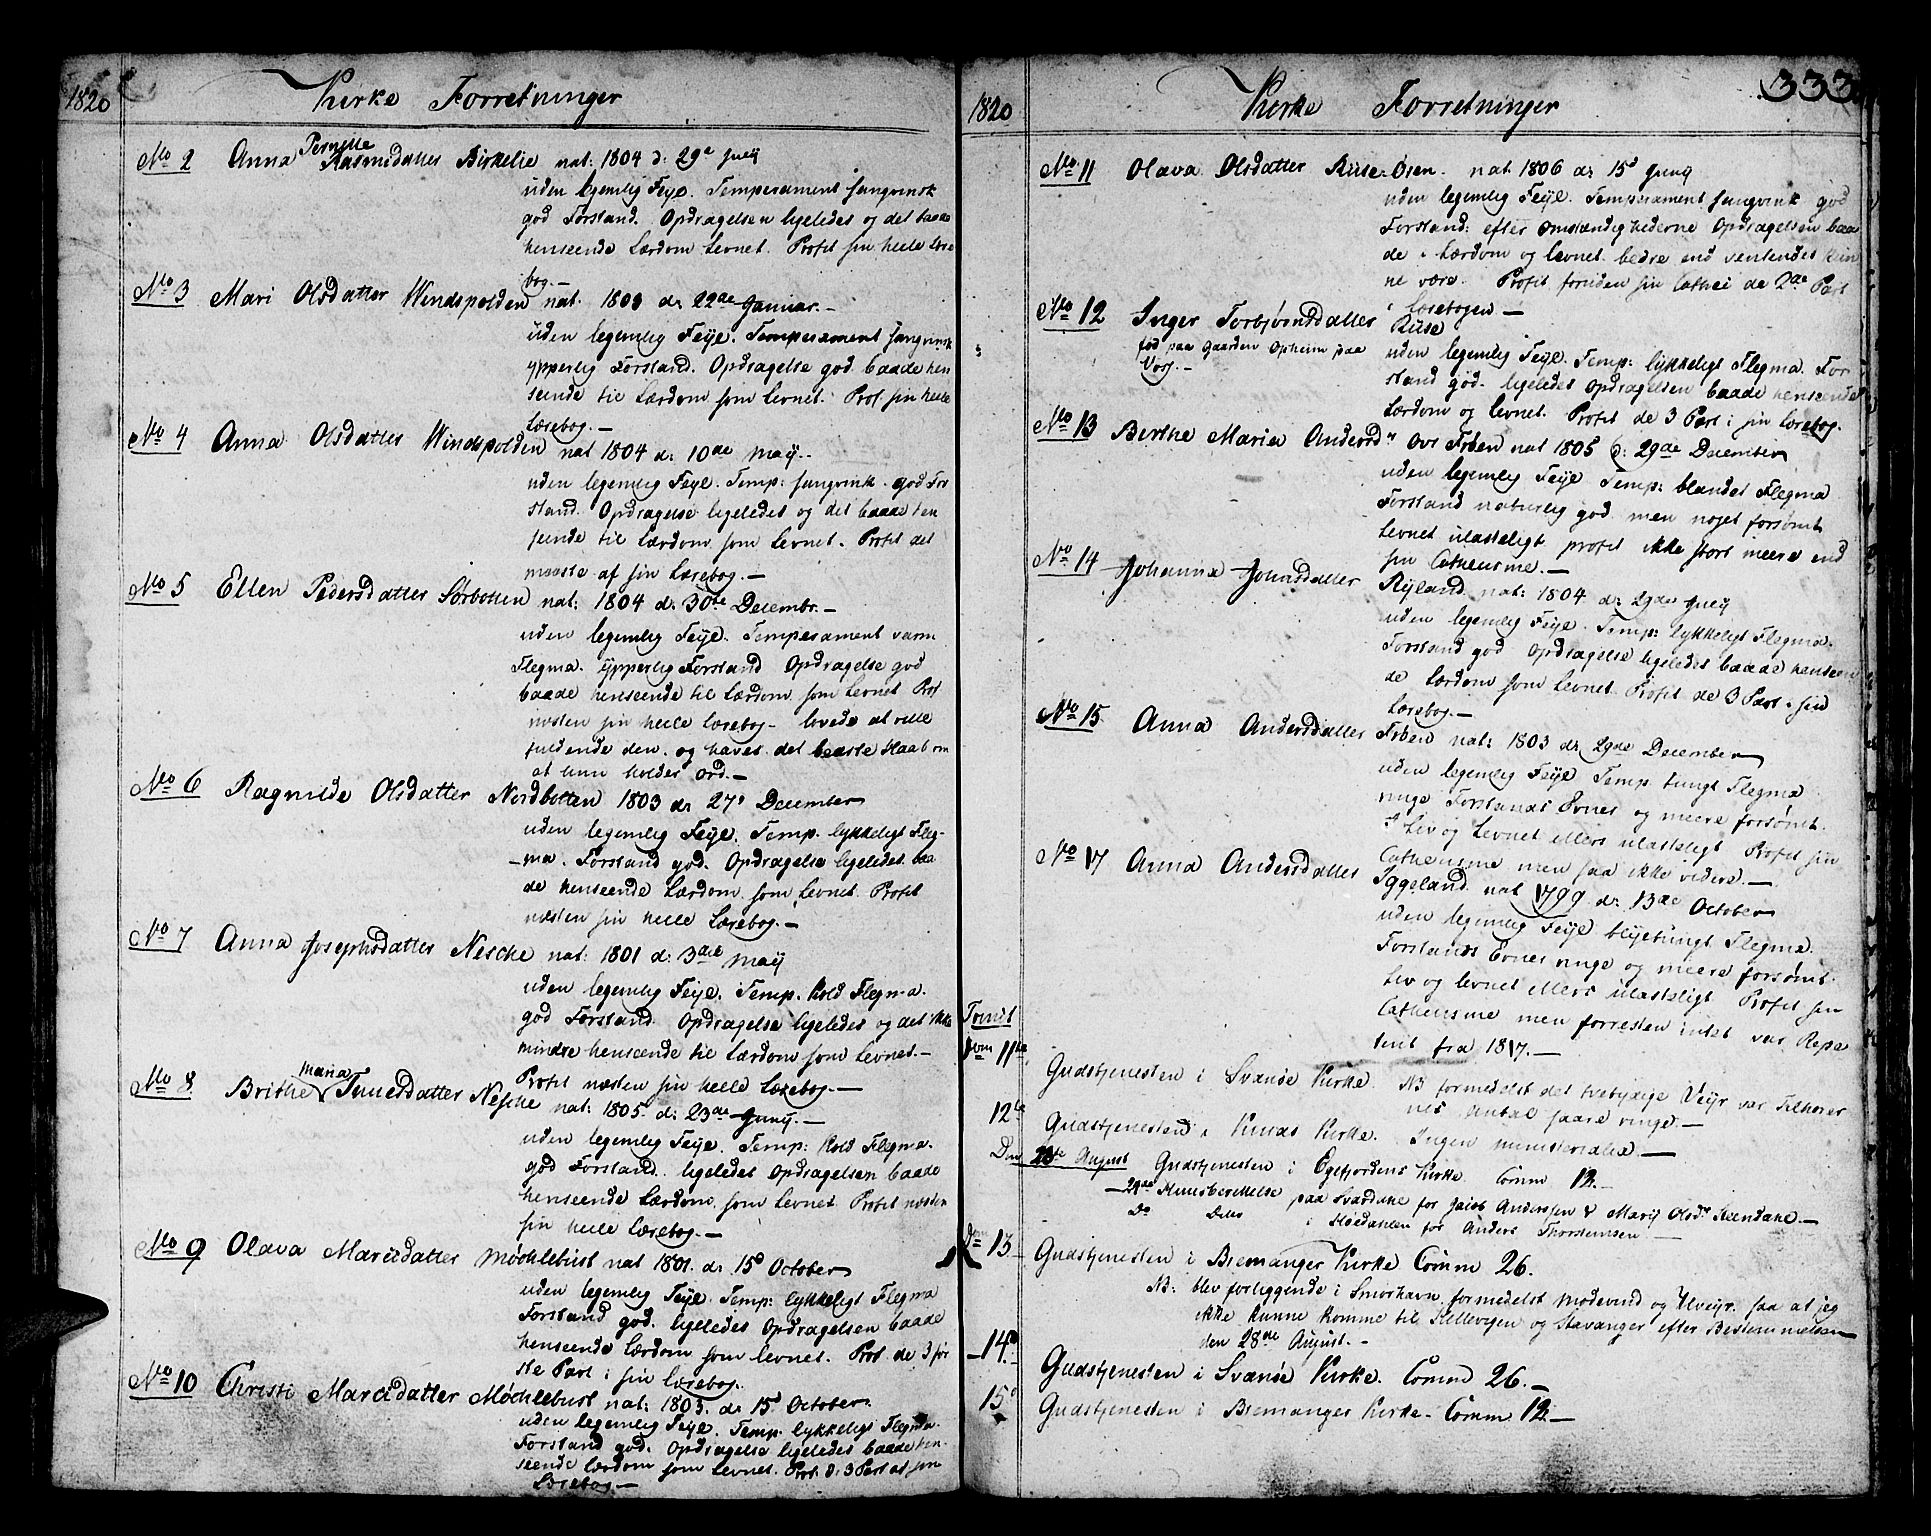 1820 Kirke Forretninger
No 2 Anna Pernelle Rasmusdatter Birkelie nat: 1804 d: 29e Juny
uden legemlig Feyl. Temperament sangvinsk
god Forstand. Opdragelsen ligeledes og det baade
henseende Lærdom Levnet. Profit sin heele Lære
bog.—
No 3 Mari Olsdatter Windspolden nat. 1803 d: 22de Januar.—
uden legemlig Feyl. Temperament sangvinsk
ypperlig Forstand. Opdragelse god baade hen
seende til Lærdom som Levnet. Prof sin heele
Lærebog.—
No 4 Anna Olsdatter Windspolden nat 1804 d: 10de May.
uden legemlig Feyl. Temp: sangvinsk. god For
stand. Opdragelse ligeledes og det baade hen
seende til Lærdom som Levnet. Profit det
meeste af sin Lærebog.—
No 5 Ellen Pedersdatter Sørbotten nat: 1804 d: 30te Decembr.—
uden legemlig Feyl. Temperament varm
Flegma. ypperlig Forstand Opdragelse god
baade henseende til Lærdom som Levnet Prof
næsten sin heele Lærebog— lovede at ville
fuldende den. og haves det beeste Haab om
at hun holder ord.—
No 6 Ragnilde Olsdatter Nordbotten 1803 d: 27d December
uden legemlig Feyl. Temp. lykkeligt Fleg-
ma. Forstand god. Opdragelse ligeledes baa
de henseende Lærdom som Levnet Profit
næsten sin heele Lærebog.—
No 7 Anna Josephsdatter Nescke nat: 1801 d: 3die May
uden legemlig Feyl. Temp. kold Flegma.
god Forstand. Opdragelse ligeledes og det ikke
mindre henseende til Lærdom som Levnet.—
Profit næsten sin heele Lærebog.—
No 8 Brithe Maria Tunesdatter Nescke nat: 1805 d: 23de Juny.—
uden legemlig Feyl. Temp: kold Flegma.
god Forstand. ligeledes Opdragelsen baade
henseende Lærdom som Levnet Profit næsten
sin heele Lærebog.—
No 9 Olava Marcusdatter Møchlebust nat 1801. d: 15d October
uden legemlig Feyl. Temp: lykkeligt Flegma
Forstand god. ligeledes Opdragelsen baade
henseende Lærdom som Levnet. Prof. de 3 før
ste Part i sin Lærebog.
No 10 Christi Marcusdatter Møchlebust nat: 1803. d: 15d October.
uden legemlig Feyl. Temp. lykkeligt Flegma.
Forstand god. Opdragelse ligeledes baade hen-
seende Lærdom som Levnet. Prof. d: 3 Part af sin
Lærebog—
1820 Kirke Forretninger 333
No 11 Olava Olsdatter Riise-Øren. nat 1806 d: 15d Juny
uden legemlig Feyl. Temperament sangvinsk god
Forstand: efter omstændighederne Opdragelsen baa
de i Lærdom og Levnet bedre end ventendes kun
ne være. Profit foruden sin Cathei de 2de Part
i Lærebogen—
No 12 Inger Torbjørnsdatter Riise
fød paa Gaarden Opheim paa
Vors.—
uden legemlig Feyl. Temp: lykkeligt Flegma. For
stand god. ligeledes Opdragelsen baade henseende
Lærdom og Levnet. Profit de 3 Part i sin Lærebog.
No 13 Berthe Maria Andersdr ovr Frøen nat 1805 d: 29de December
uden legemlig Feyl Temp: blandet Flegma
Forstand naturlig god. men noget forsømt
Levnet ulasteligt profit ikke stort meere end
sin Catheusme.—
No 14 Johanna Johnsdatter Ryland. nat: 1804 d: 29de Juny
uden legemlig Feyl. Temp: lykkeligt Flegma.
Forstand god Opdragelse ligeledes baade henseen
de Lærdom som Levnet. Profit de 3 Part i sin
Lærebog.—
No 15 Anna Andersdatter Frøen nat: 1803 d: 29de December
uden legemlig Feyl Temp tungt Flegma
ringe Forstands Evner og meere forsømt.
I Liv og Levnet ellers ulasteligt Profit sin
Catheusme men saa ikke videre.—
No 17 Anna Andersdatter Iggeland. nat 1799 d: 13de October
uden legemlig Feyl blyetungt Flegma.
Forstands Evner ringe og meere forsømt.
Liv og Levnet ellers ulasteligt Profit sin
Catheusme men forresten intet var Repe
tent fra 1817.—
Trinit
Dom 11te Gudstjenesten i Svanøe Kirke. NB formedelst det tvetydige Veyr var Tilhører
nes Antal saare ringe.—
12te Gudstjenesten i Kinds Kirke. Ingen ministerialia.—
Den 23te August Gudstjenesten i Egefjordens Kirke Comm 12.—
—29de Huusberettelse paa Svardahl for Jacob Anderssen & Mary Olsdr
Do Dito i Høedahlen for Anders Thorsteinsen—
Dom 13 Gudstjenesten i Bremanger Kirke Comm 26.
NB: blev forliggende i Smorhavn formedelst Modevind og Uveyr. saa at jeg
ikke kunne komme til Kellevogen og Stavanger efter Bestemmelsen
den 28de August.—
—14d Gudstjenesten i Svanøe Kirke. Comm 26.—
15d Gudstjenesten i Bremanger Kirke. Comm 12.—